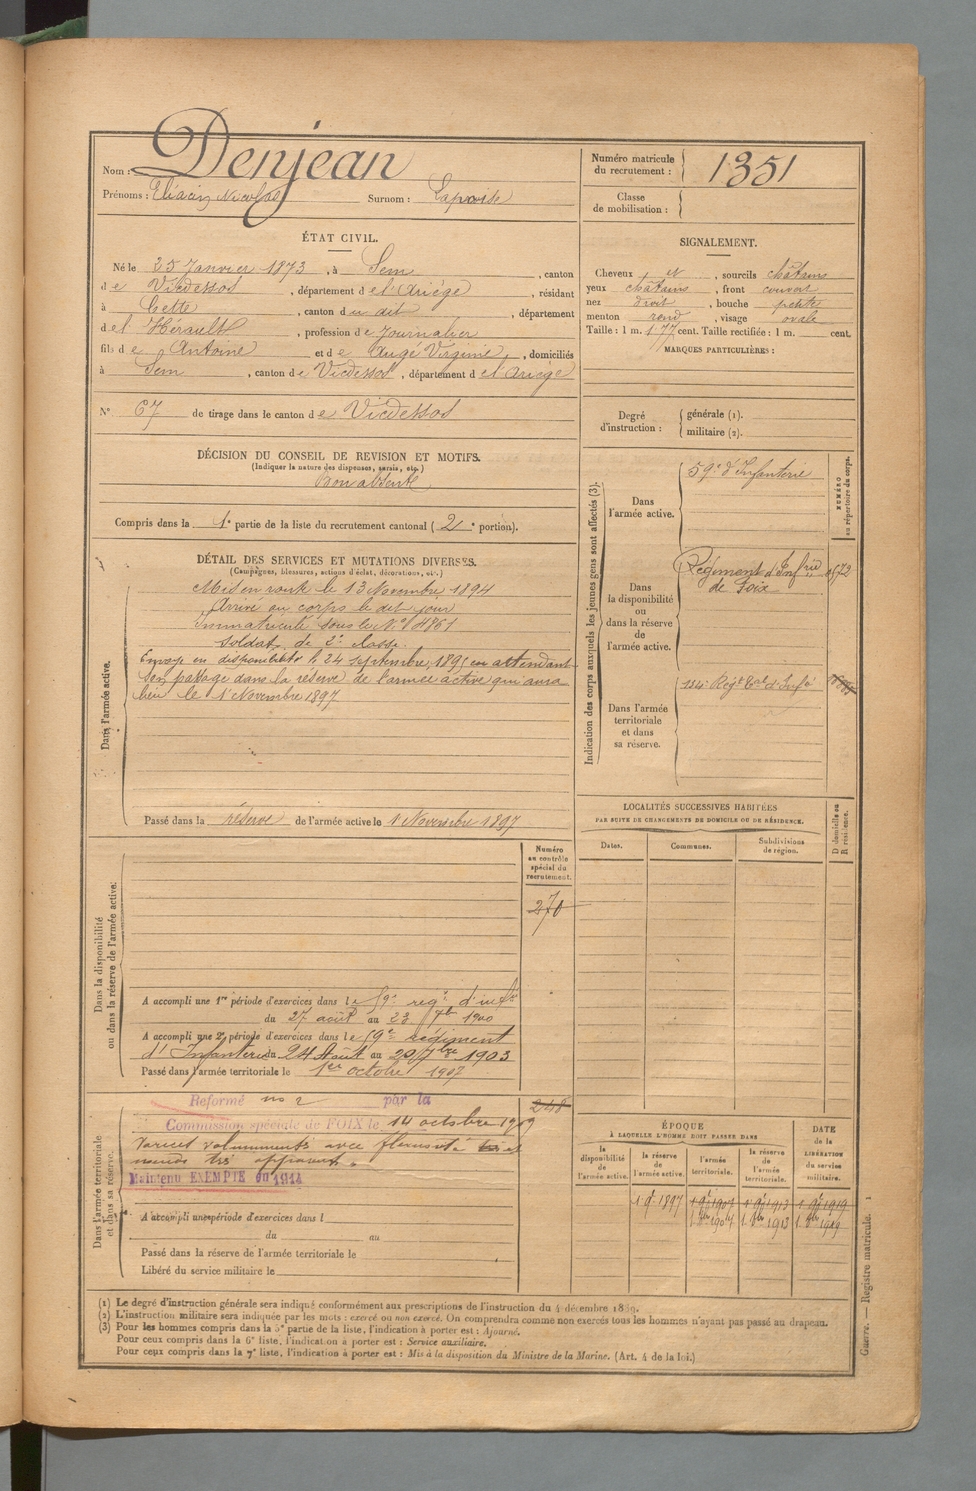 Nom : Denjean
Prénoms : Eliacin Nicolas Surnom : Lapoaise
Numéro matricule du recrutement : 1351
Classe de mobilisation :
ÉTAT CIVIL.
Né le 25 Janvier 1873, à Sem, canton
de Vicdessos, département de l'Ariège, résidant
à Cette, canton du dit, département
de l'Hérault, profession de Journalier
fils de Antoine et de Augé Virginie, domiciliés
à Sem, canton de Vicdessos, département de l'Ariège
N° 67 de tirage dans le canton de Vicdessos
SIGNALEMENT.
Cheveux et, sourcils châtains
yeux châtains, front couvert
nez droit, bouche petite
menton rond, visage ovale
Taille : 1 m. 77 cent. Taille rectifiée : 1 m. cent.
MARQUES PARTICULIÈRES :
Degré d'instruction :
générale (1).
militaire (2).
DÉCISION DU CONSEIL DE REVISION ET MOTIFS.
(Indiquer la nature des dispenses, sursis, etc.)
Bon absent
Compris dans la 1e partie de la liste du recrutement cantonal (2e portion).
DÉTAIL DES SERVICES ET MUTATIONS DIVERSES.
(Campagnes, blessures, actions d'éclat, décorations, etc.)
Dans l'armée active.
Mis en route le 13 Novembre 1894
Arrivé au corps le dit jour
Immatriculé sous le N°
soldat de 2e classe
Envoyé en disponibilité le 24 septembre 1895 en attendant
son passage dans la réserve de l'armée active qui aura
lieu le 1 Novembre 1897
Passé dans la réserve de l'armée active le 1 Novembre 1897
Indication des corps auxquels les jeunes gens sont affectés (3).
NUMÉRO au répertoire du corps.
Dans l'armée active.
59e d'Infanterie
Dans la disponibilité ou dans la réserve de l'armée active.
Régiment d'Infrie
de Foix
Dans l'armée territoriale et dans sa réserve.
134e Regt Tal d'Infie
LOCALITÉS SUCCESSIVES HABITÉES
PAR SUITE DE CHANGEMENTS DE DOMICILE OU DE RÉSIDENCE.
Dates. Communes. Subdivisions de région. D domicile ou R résidence.
Dans la disponibilité ou dans la réserve de l'armée active.
Numéro au contrôle spécial du recrutement.
270
A accompli une 1re période d'exercices dans le 59e regt d'infie
du 27 août au 23 7bre 1900
A accompli une 2e période d'exercices dans le 59e régiment
d'Infanterie du 24 Août au 20 7bre 1903
Passé dans l'armée territoriale le 1er octobre 1907
Dans l'armée territoriale et dans sa réserve.
248
Reformé no 2 par la
Commission spéciale de FOIX le 14 octobre 1909
Varices volumineuses avec
Maintenu EXEMPTÉ en 1914
A accompli une période d'exercices dans l
du au
Passé dans la réserve de l'armée territoriale le
Libéré du service militaire le
ÉPOQUE
À LAQUELLE L'HOMME DOIT PASSER DANS
la disponibilité de l'armée active.
la réserve de l'armée active.
l'armée territoriale.
la réserve de l'armée territoriale.
DATE de la LIBÉRATION du service militaire.
1 9e 1897 1 9e 1907 1 9e 1913 1 9e 1919
(1) Le degré d'instruction générale sera indiqué conformément aux prescriptions de l'instruction du 4 décembre 1889.
(2) L'instruction militaire sera indiquée par les mots : exercé ou non exercé. On comprendra comme non exercés tous les hommes n'ayant pas passé au drapeau.
(3) Pour les hommes compris dans la 5e partie de la liste, l'indication à porter est : Ajourné.
Pour ceux compris dans la 6e liste, l'indication à porter est : Service auxiliaire.
Pour ceux compris dans la 7e liste, l'indication à porter est : Mis à la disposition du Ministre de la Marine. (Art. 4 de la loi.)
Guerre. — Registre matricule. 1